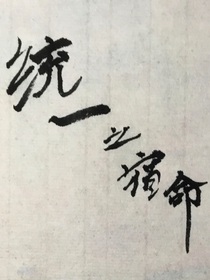 统一之宿命